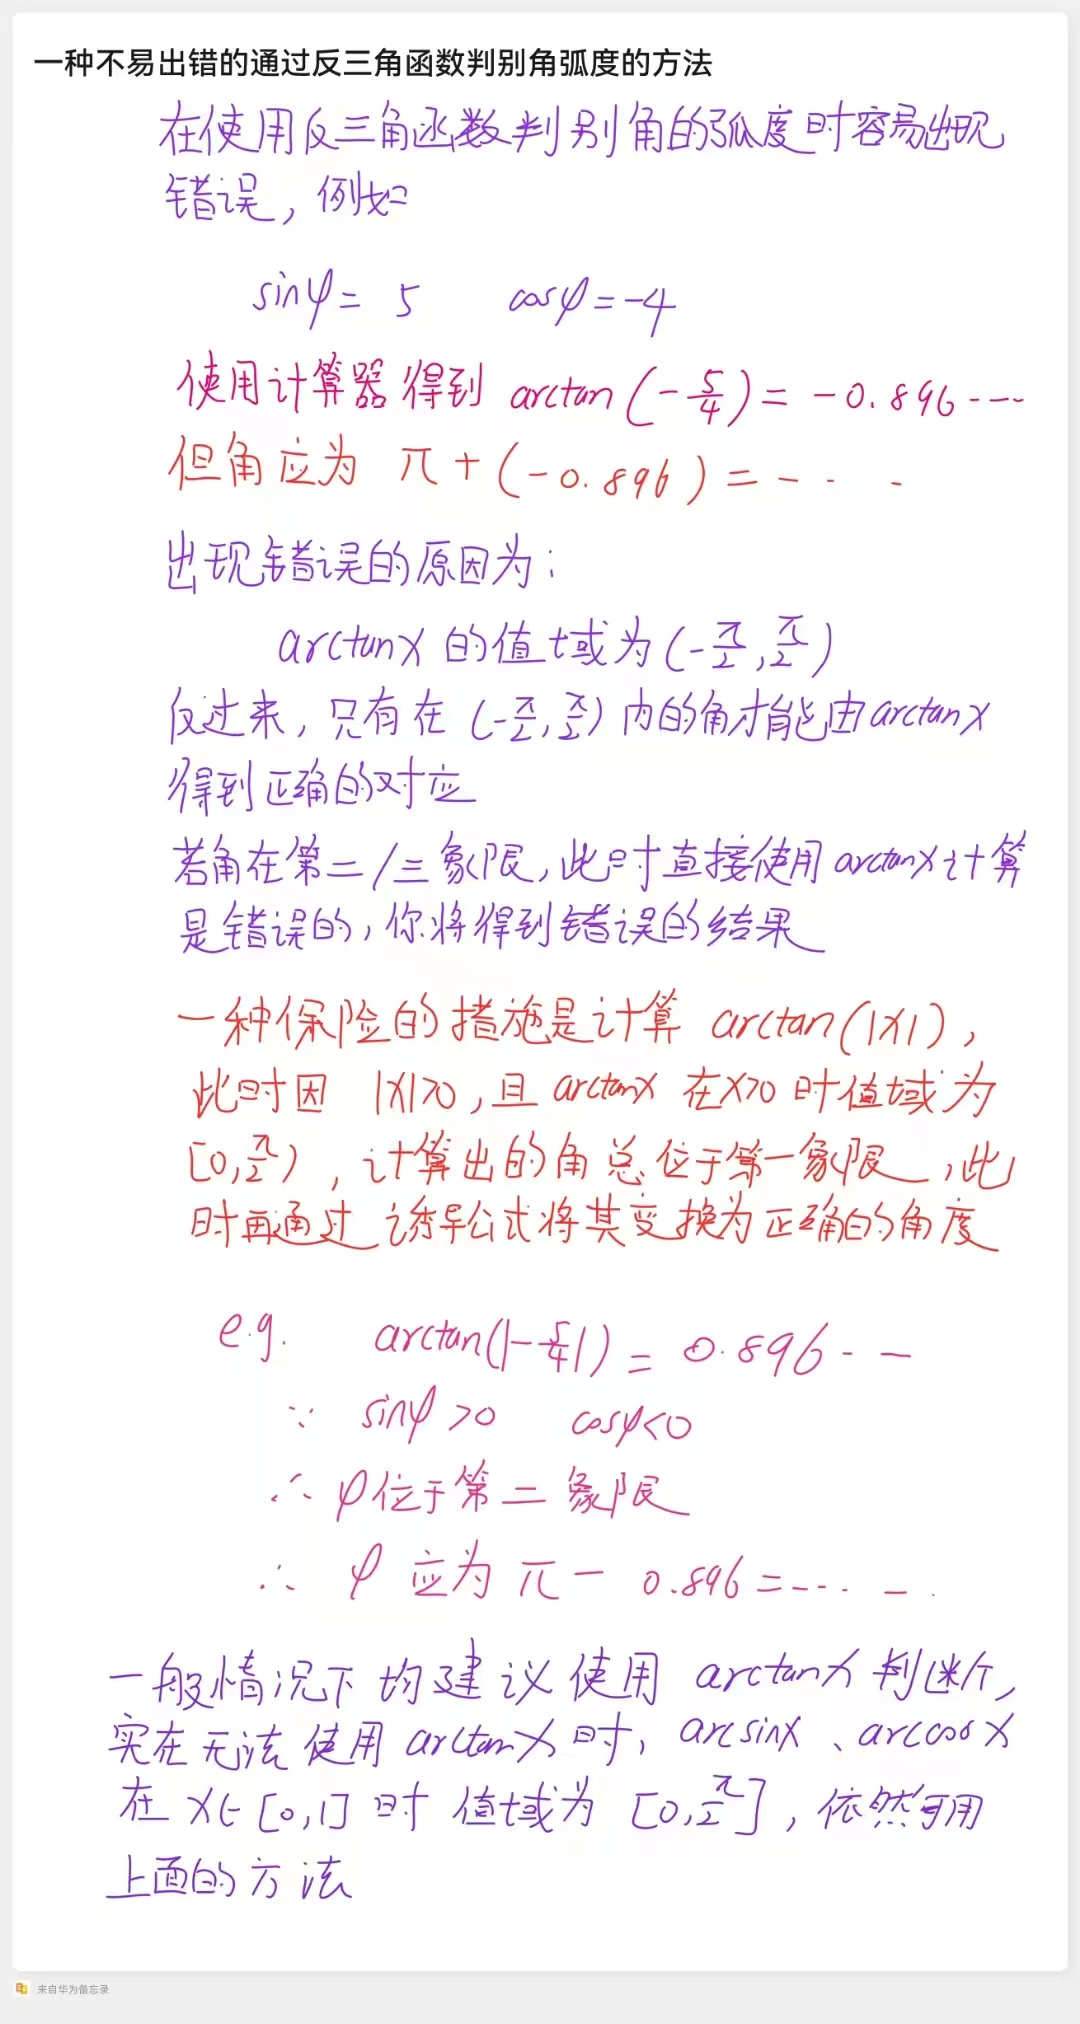 一种不易出错的通过反三角函数判别角弧度的方法
在使用反三角函数判别角的弧度时容易出现
错误，例如
sinφ = 5 cosφ = -4
使用计算器得到 arctan(-5/4) = -0.896 ···
但角应为 π + (-0.896) = - · · -
出现错误的原因为：
arctanx 的值域为 (-π/2, π/2)
反过来，只有在 (-π/2, π/2) 内的角才能由 arctanx
得到正确的对应
若角在第二/三象限，此时直接使用 arctanx 计算
是错误的，你将得到错误的结果
一种保险的措施是计算 arctan(|x|)，
此时因 |x|>0，且 arctanx 在 x>0 时值域为
[0, π/2)，计算出的角总位于第一象限，此
时再通过诱导公式将其变换为正确的角度
e.g. arctan(|-5/4|) = 0.896 - —
∵ sinφ >0 cosφ<0
∴ φ位于第二象限
∴ φ 应为 π - 0.896 = - ··· - ·
一般情况下均建议使用 arctanx 判断，
实在无法使用 arctanx 时，arcsinx、arccosx
在 x∈[0,1] 时 值域为 [0, π/2]，依然可用
上面的方法
来自华为备忘录